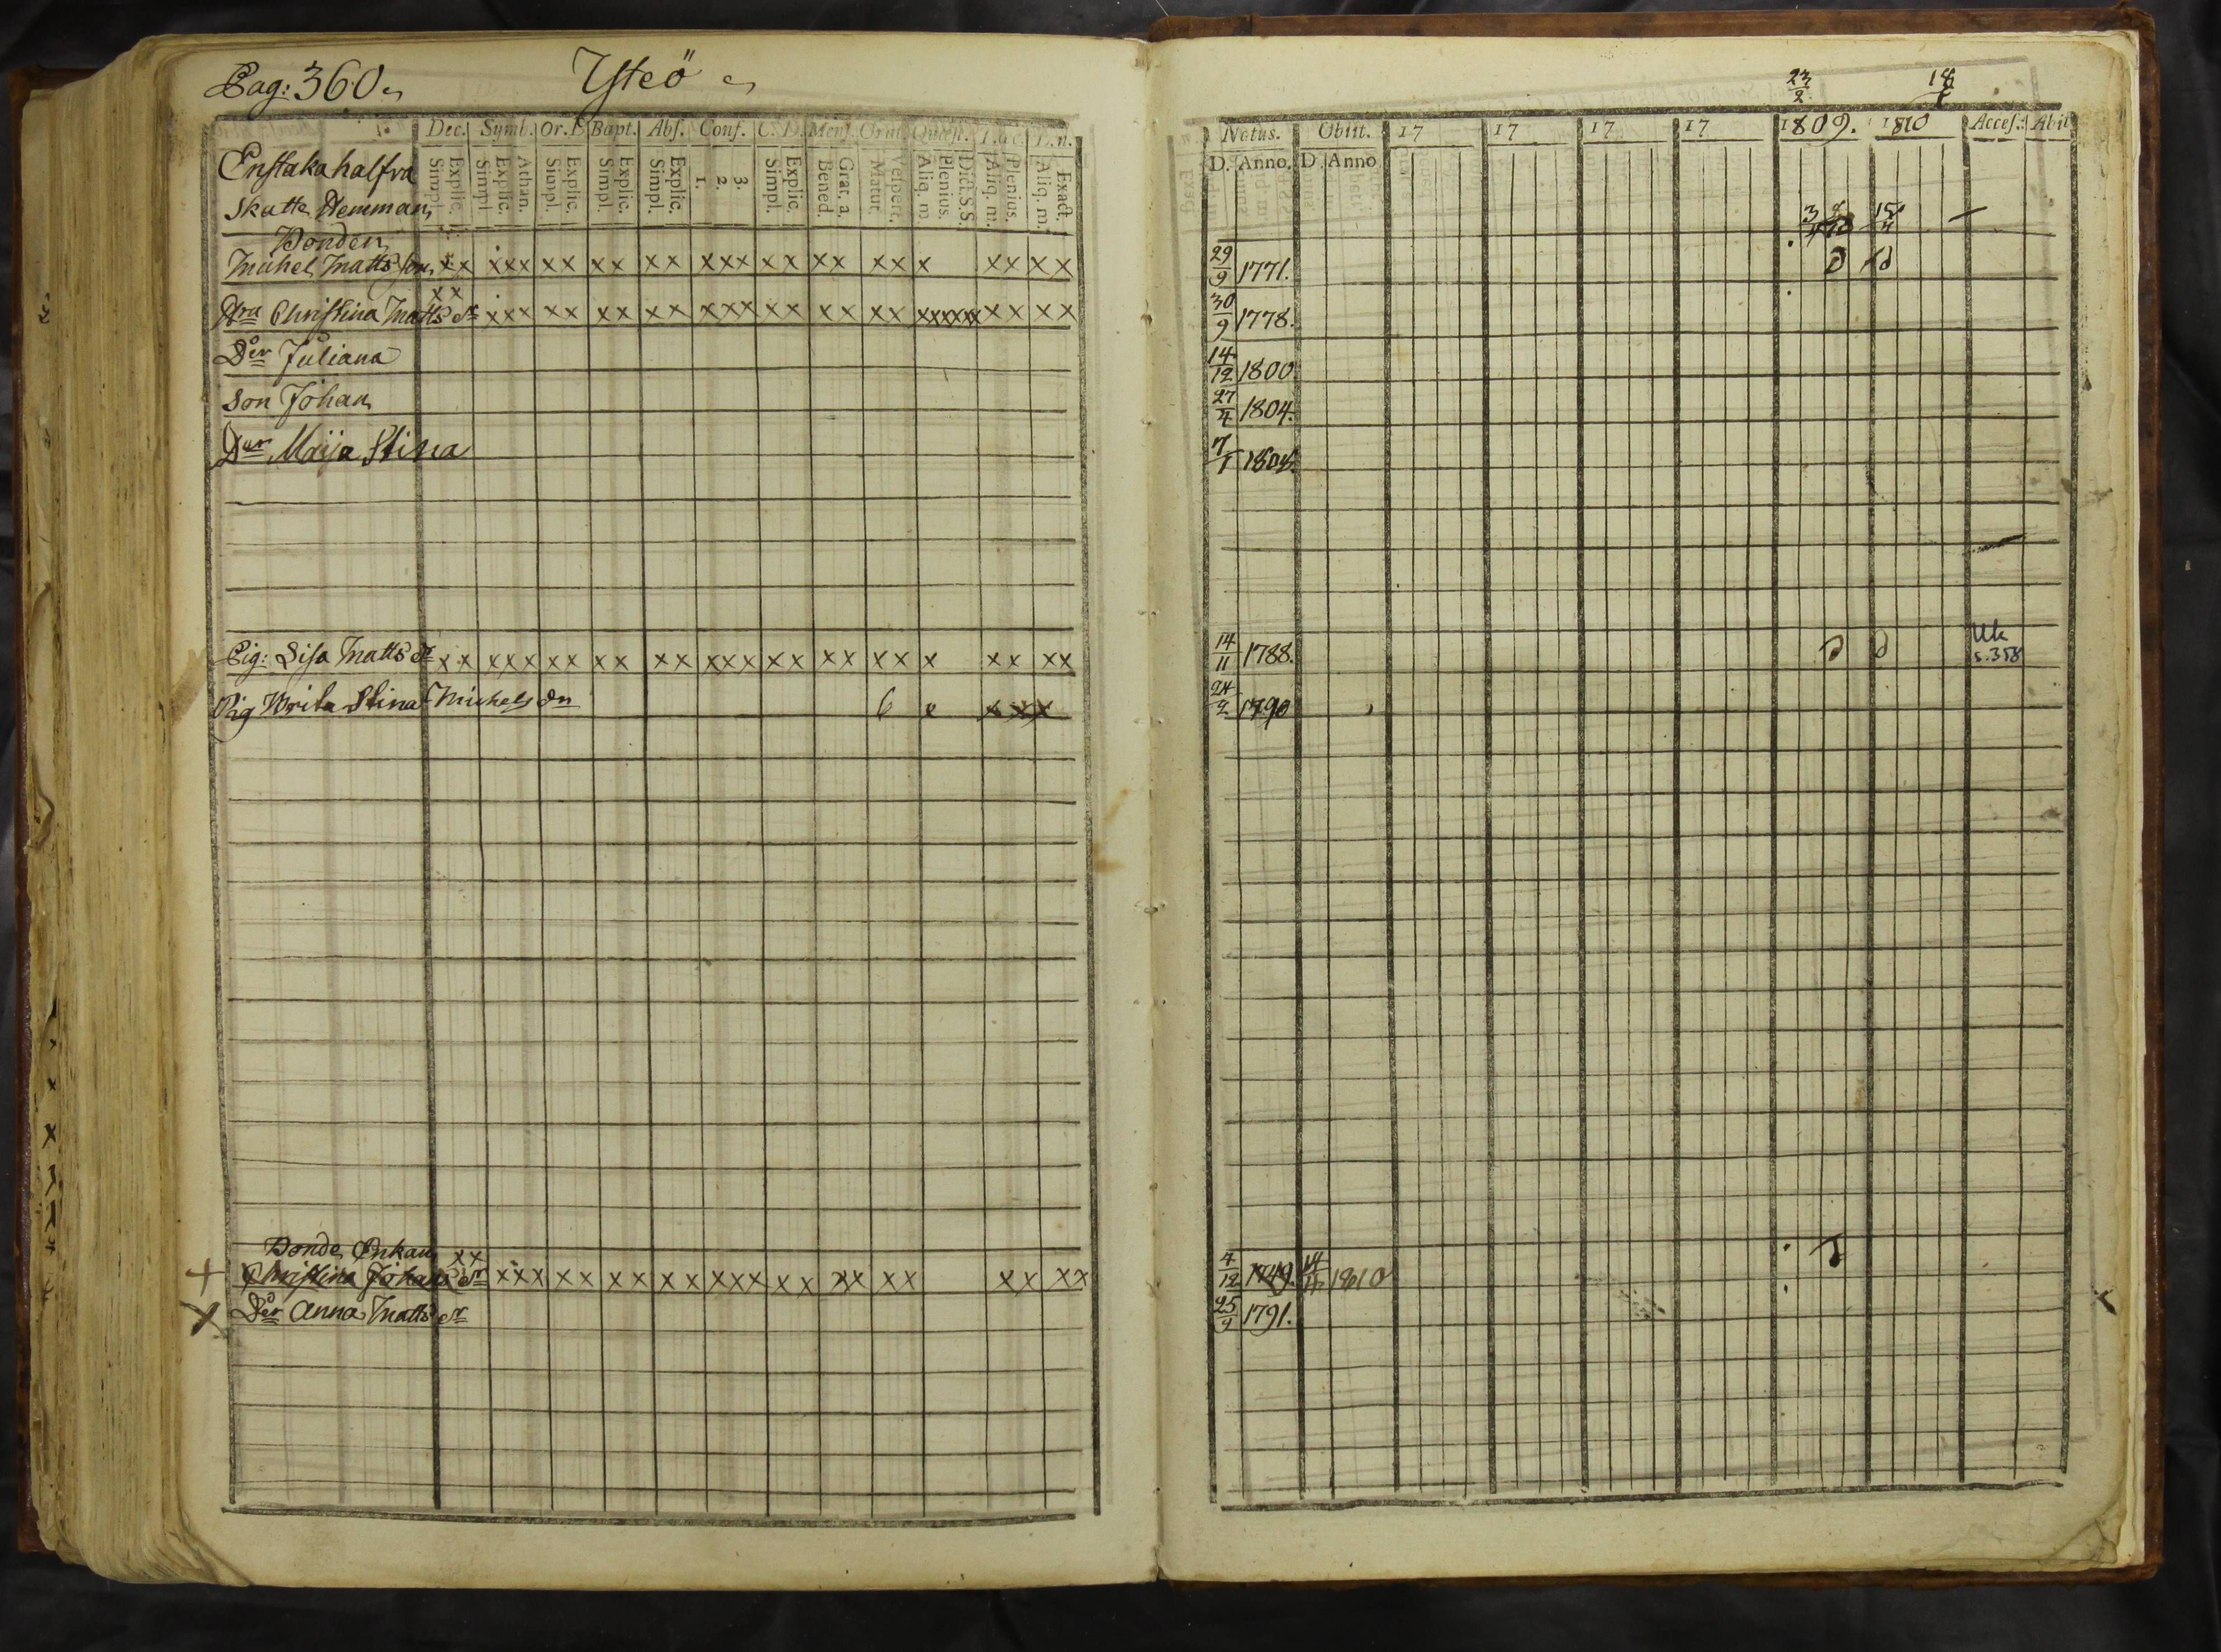 Pag: 360. Ysteö
Dec. Symb. Or. D Bapt. Abs. Conf. C. D. Mens. Orat. Quæst. T.
Simpl. Explic. Simpl Explic. Athan. Simpl. Explic. Simpl. Explic. Simpl. Explic. 1. 2. 3. Simpl. Explic. Bened. Grat. a. Matut. Vespert. Aliq. m. Plenius. Dict. S.S. Aliq. m. Plenius. Aliq. m. Exact.
Enstaka halfva
Skatte Hemman
Bonden
Michel Mattsson xx xxx xx xx xx xxx xx xx xx x xx xx
xx
Hru Christina Matts dr xxx xx xx xx xxx xx xx xx xxxxxx xx xx
Dr Juliana
Son Johan
Dr Maija Stina
Pig: Lisa Matts dr xx xxx xx xx xx xxx xx xx xx x xx xx
Pig Brita Stina Michels dr 6 x xxx
Bonde Enkan xx
+ Christina Johans dr xxx xx xx xx xxx xx xx xx xx xx
x Dr Anna Matts dr
23/2 18/1
Natus. Obiit. 17 17 17 17 1809. 1810 Acces. Abit
D. Anno. D. Anno
15/4
29/9 1771.
30/9 1778.
14/12 1800.
27/4 1804.
7/1 1808.
14/11 1788. Uk
s. 358
24/2 1790
4/12 1749. 1810
25/9 1791. x